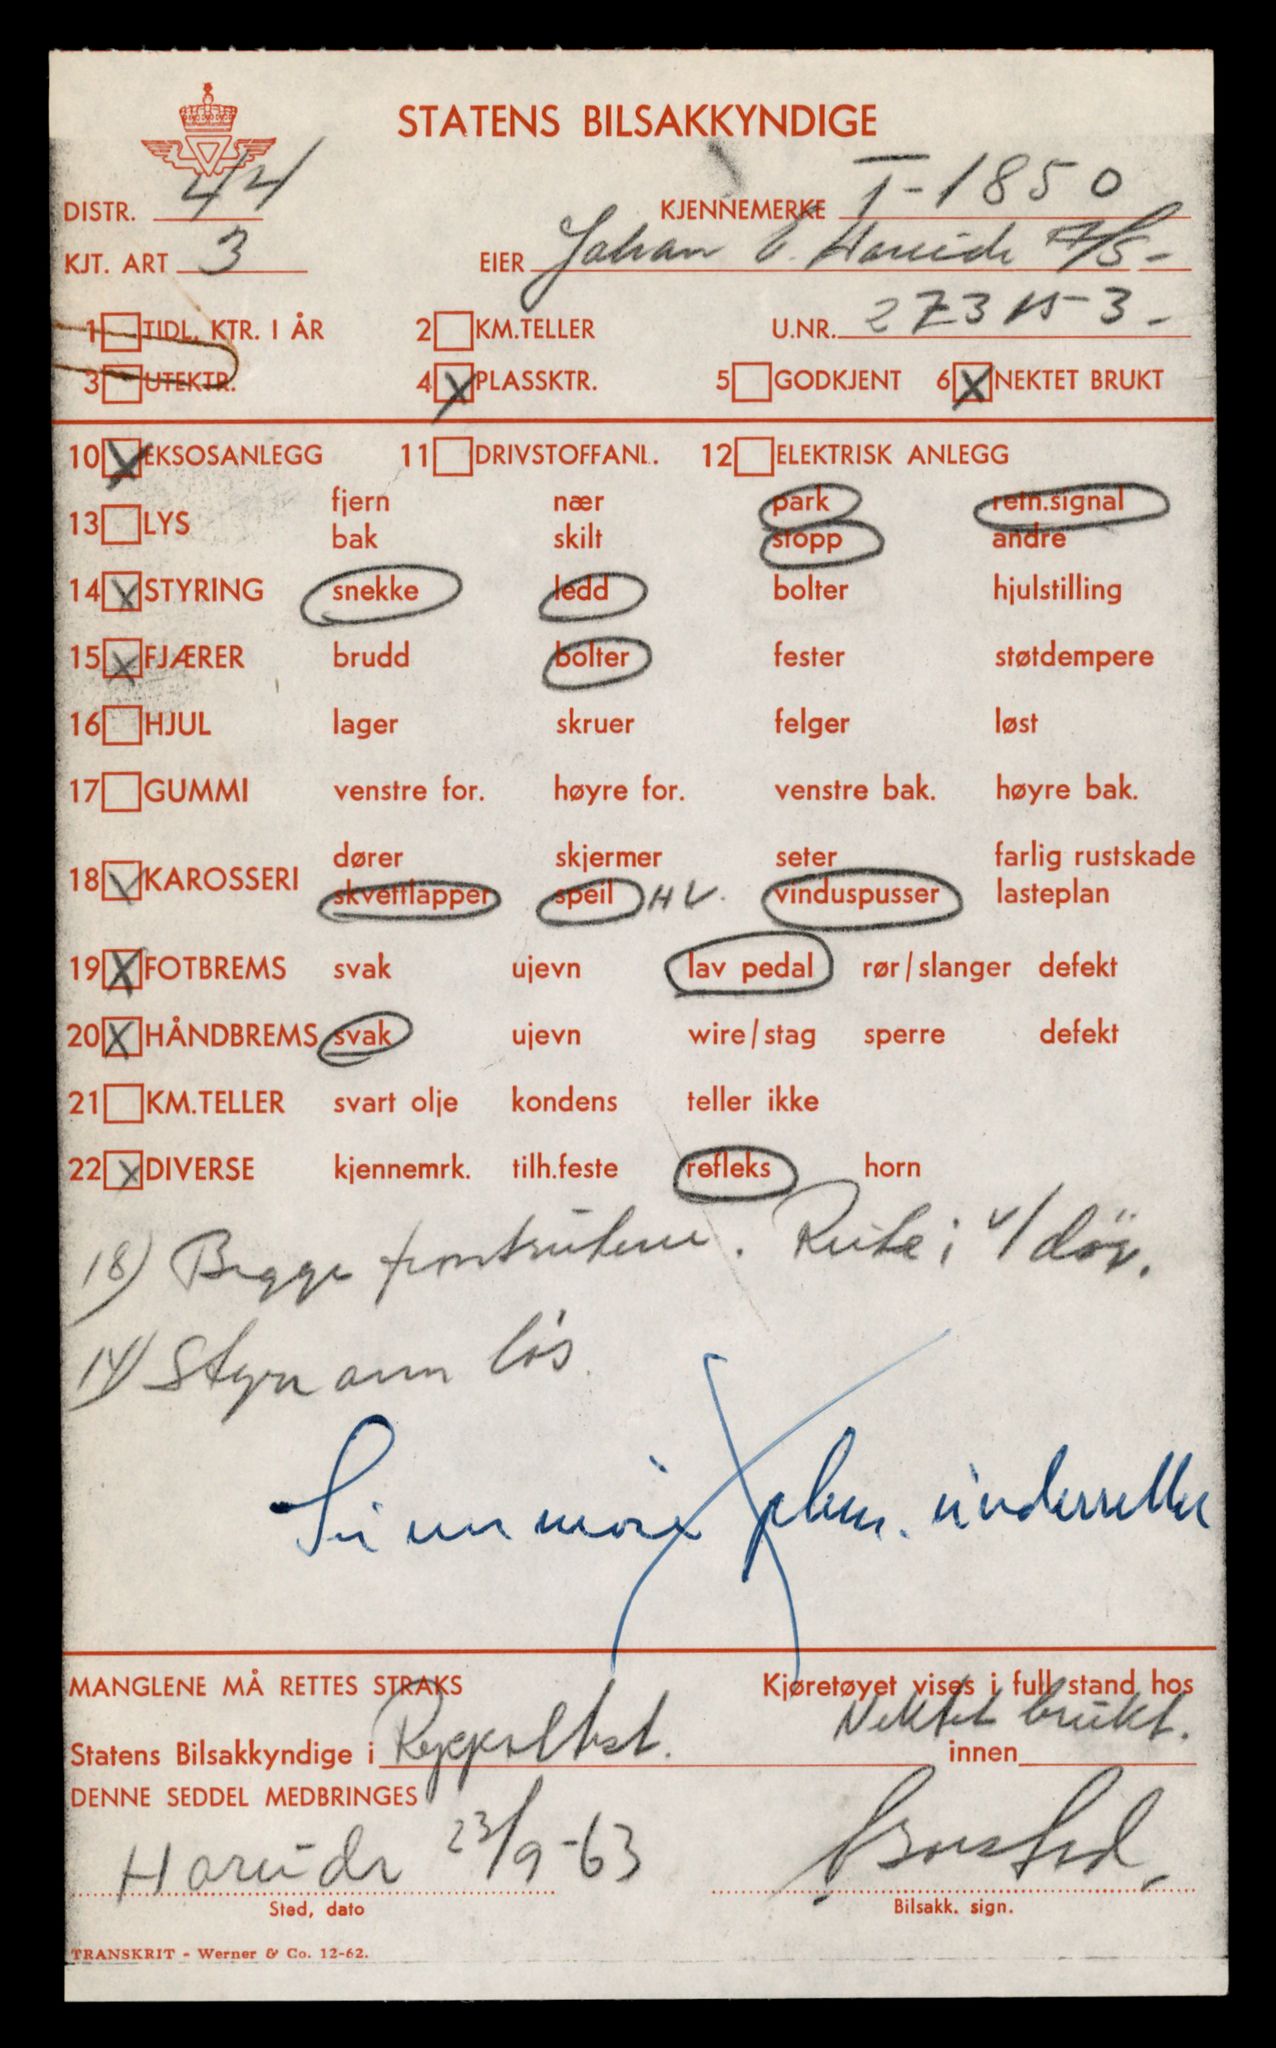 STATENS BILSAKKYNDIGE
DISTR. 44 KJENNEMERKE T-1850
KJT. ART 3 EIER Johan E. Hareide A/S-
1 TIDL. KTR. I ÅR 2 KM.TELLER U.NR. 273153-
3 UTEKTR. 4 X PLASSKTR. 5 GODKJENT 6 X NEKTET BRUKT
10 X EKSOSANLEGG 11 DRIVSTOFFANL. 12 ELEKTRISK ANLEGG
fjern nær park retn.signal
13 LYS
bak skilt stopp andre
14 X STYRING snekke ledd bolter hjulstilling
15 X FJÆRER brudd bolter fester støtdempere
16 HJUL lager skruer felger løst
17 GUMMI venstre for. høyre for. venstre bak. høyre bak.
dører skjermer seter farlig rustskade
18 KAROSSERI
skvettlapper speil H V. vinduspusser lasteplan
19 X FOTBREMS svak ujevn lav pedal rør/slanger defekt
20 X HÅNDBREMS svak ujevn wire/stag sperre defekt
21 KM.TELLER svart olje kondens teller ikke
22 X DIVERSE kjennemrk. tilh.feste refleks horn
18) Begge frontrutene. Rute i v/dör.
14) Styrearm lös.
underretter
MANGLENE MÅ RETTES STRAKS Kjøretøyet vises i full stand hos
Nektet brukt.
Statens Bilsakkyndige i innen
DENNE SEDDEL MEDBRINGES
Hareide 23/9-63
Sted, dato Bilsakk. sign.
TRANSKRIT - Werner & Co. 12-62.